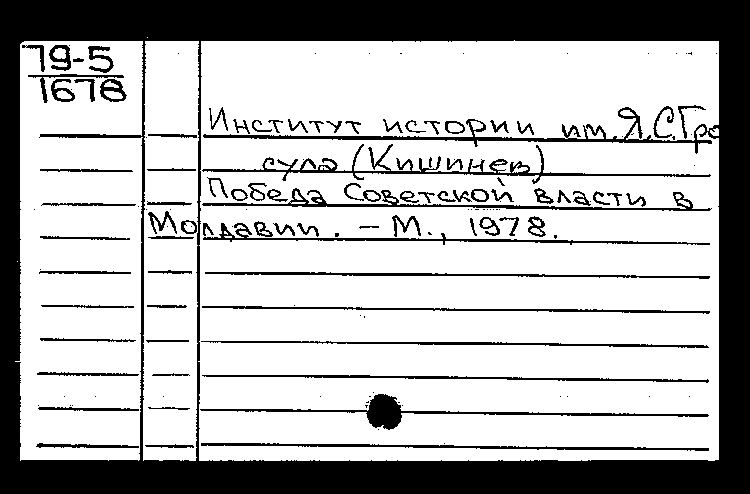 79-5
1678
Институт истории им. Я.С. Гро
сула (Кишинев)
Победа Советской власти в
Молдавии. – М., 1978.